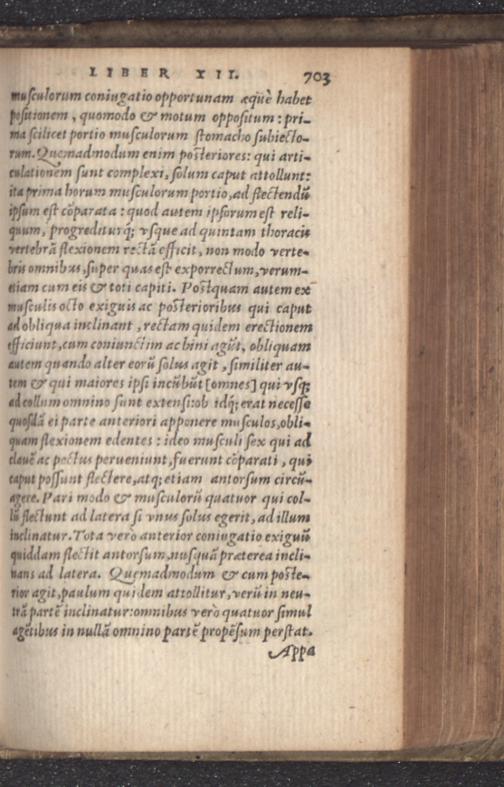 LIBER XII. 703
musculorum coniugatio opportunam æquè habet
positionem, quomodo & motum oppositum: pri-
ma scilicet portio musculorum stomacho subiecto-
rum. Quemadmodum enim posteriores: qui arti-
culationem sunt complexi, solum caput attollunt:
ita prima horum musculorum portio, ad flectendū
ipsum est cōparata: quod autem ipsorum est reli-
quum, progrediturq; vsque ad quintam thoracis
vertebrā flexionem rectā efficit, non modo verte-
bris omnibus, super quas est exporrectum, verum-
etiam cum eis & toti capiti. Postquam autem ex
musculis octo exiguis ac posterioribus qui caput
ad obliqua inclinant, rectam quidem erectionem
efficiunt, cum coniunctim ac bini agūt, obliquam
autem quando alter eorū solus agit, similiter au-
tem & qui maiores ipsi incūbūt [omnes] qui vsq;
ad collum omnino sunt extensi: ob idq; erat necesse
quosdā ei parte anteriori apponere musculos, obli-
quam flexionem edentes: ideo musculi sex qui ad
clauē ac pectus perueniunt, fuerunt cōparati, qui
caput possunt flectere, atq; etiam antorsum circū-
agere. Pari modo & musculorū quatuor qui col-
lū flectunt ad latera si vnus solus egerit, ad illum
inclinatur. Tota verò anterior coniugatio exiguū
quiddam flectit antorsum, nusquā præterea incli-
nans ad latera. Quemadmodum & cum poste-
rior agit, paulum quidem attollitur, verū in neu-
trā partē inclinatur: omnibus verò quatuor simul
agētibus in nullā omnino partē propēsum perstat.
Appa